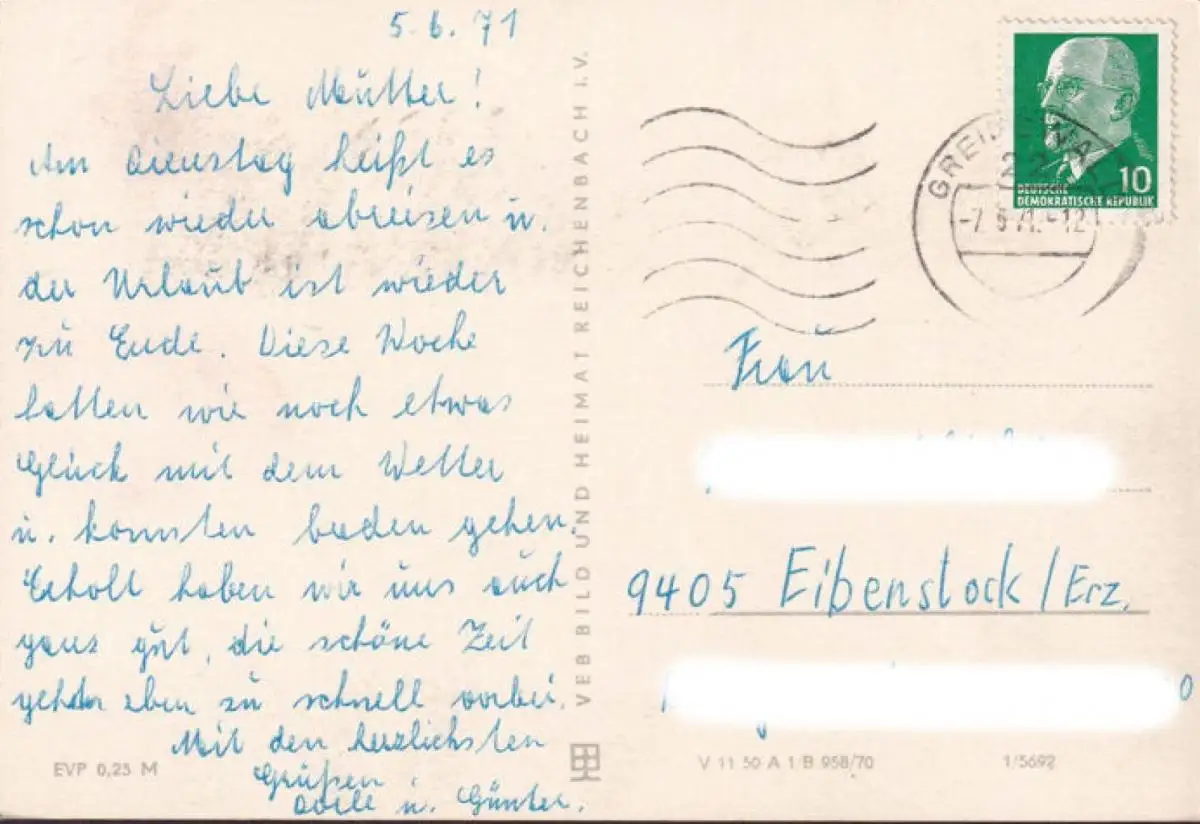 5.6.71
Liebe Mutter!
Am Dienstag heißt es
schon wieder abreisen u.
der Urlaub ist wieder
zu Ende. Diese Woche
hatten wir noch etwas
Glück mit dem Wetter
u. konnten baden gehen.
Erholt haben wir uns auch
ganz gut, die schöne Zeit
geht eben zu schnell vorbei.
Mit den herzlichsten
Grüßen
u. Günter.
EVP 0,25 M
VEB BILD UND HEIMAT REICHENBACH I.V.
10
DEUTSCHE
DEMOKRATISCHE REPUBLIK
-7.6.71.-12
Frau
9405 Eibenstock/Erz.
V 11 50 A 1 B 958/70
1/5692